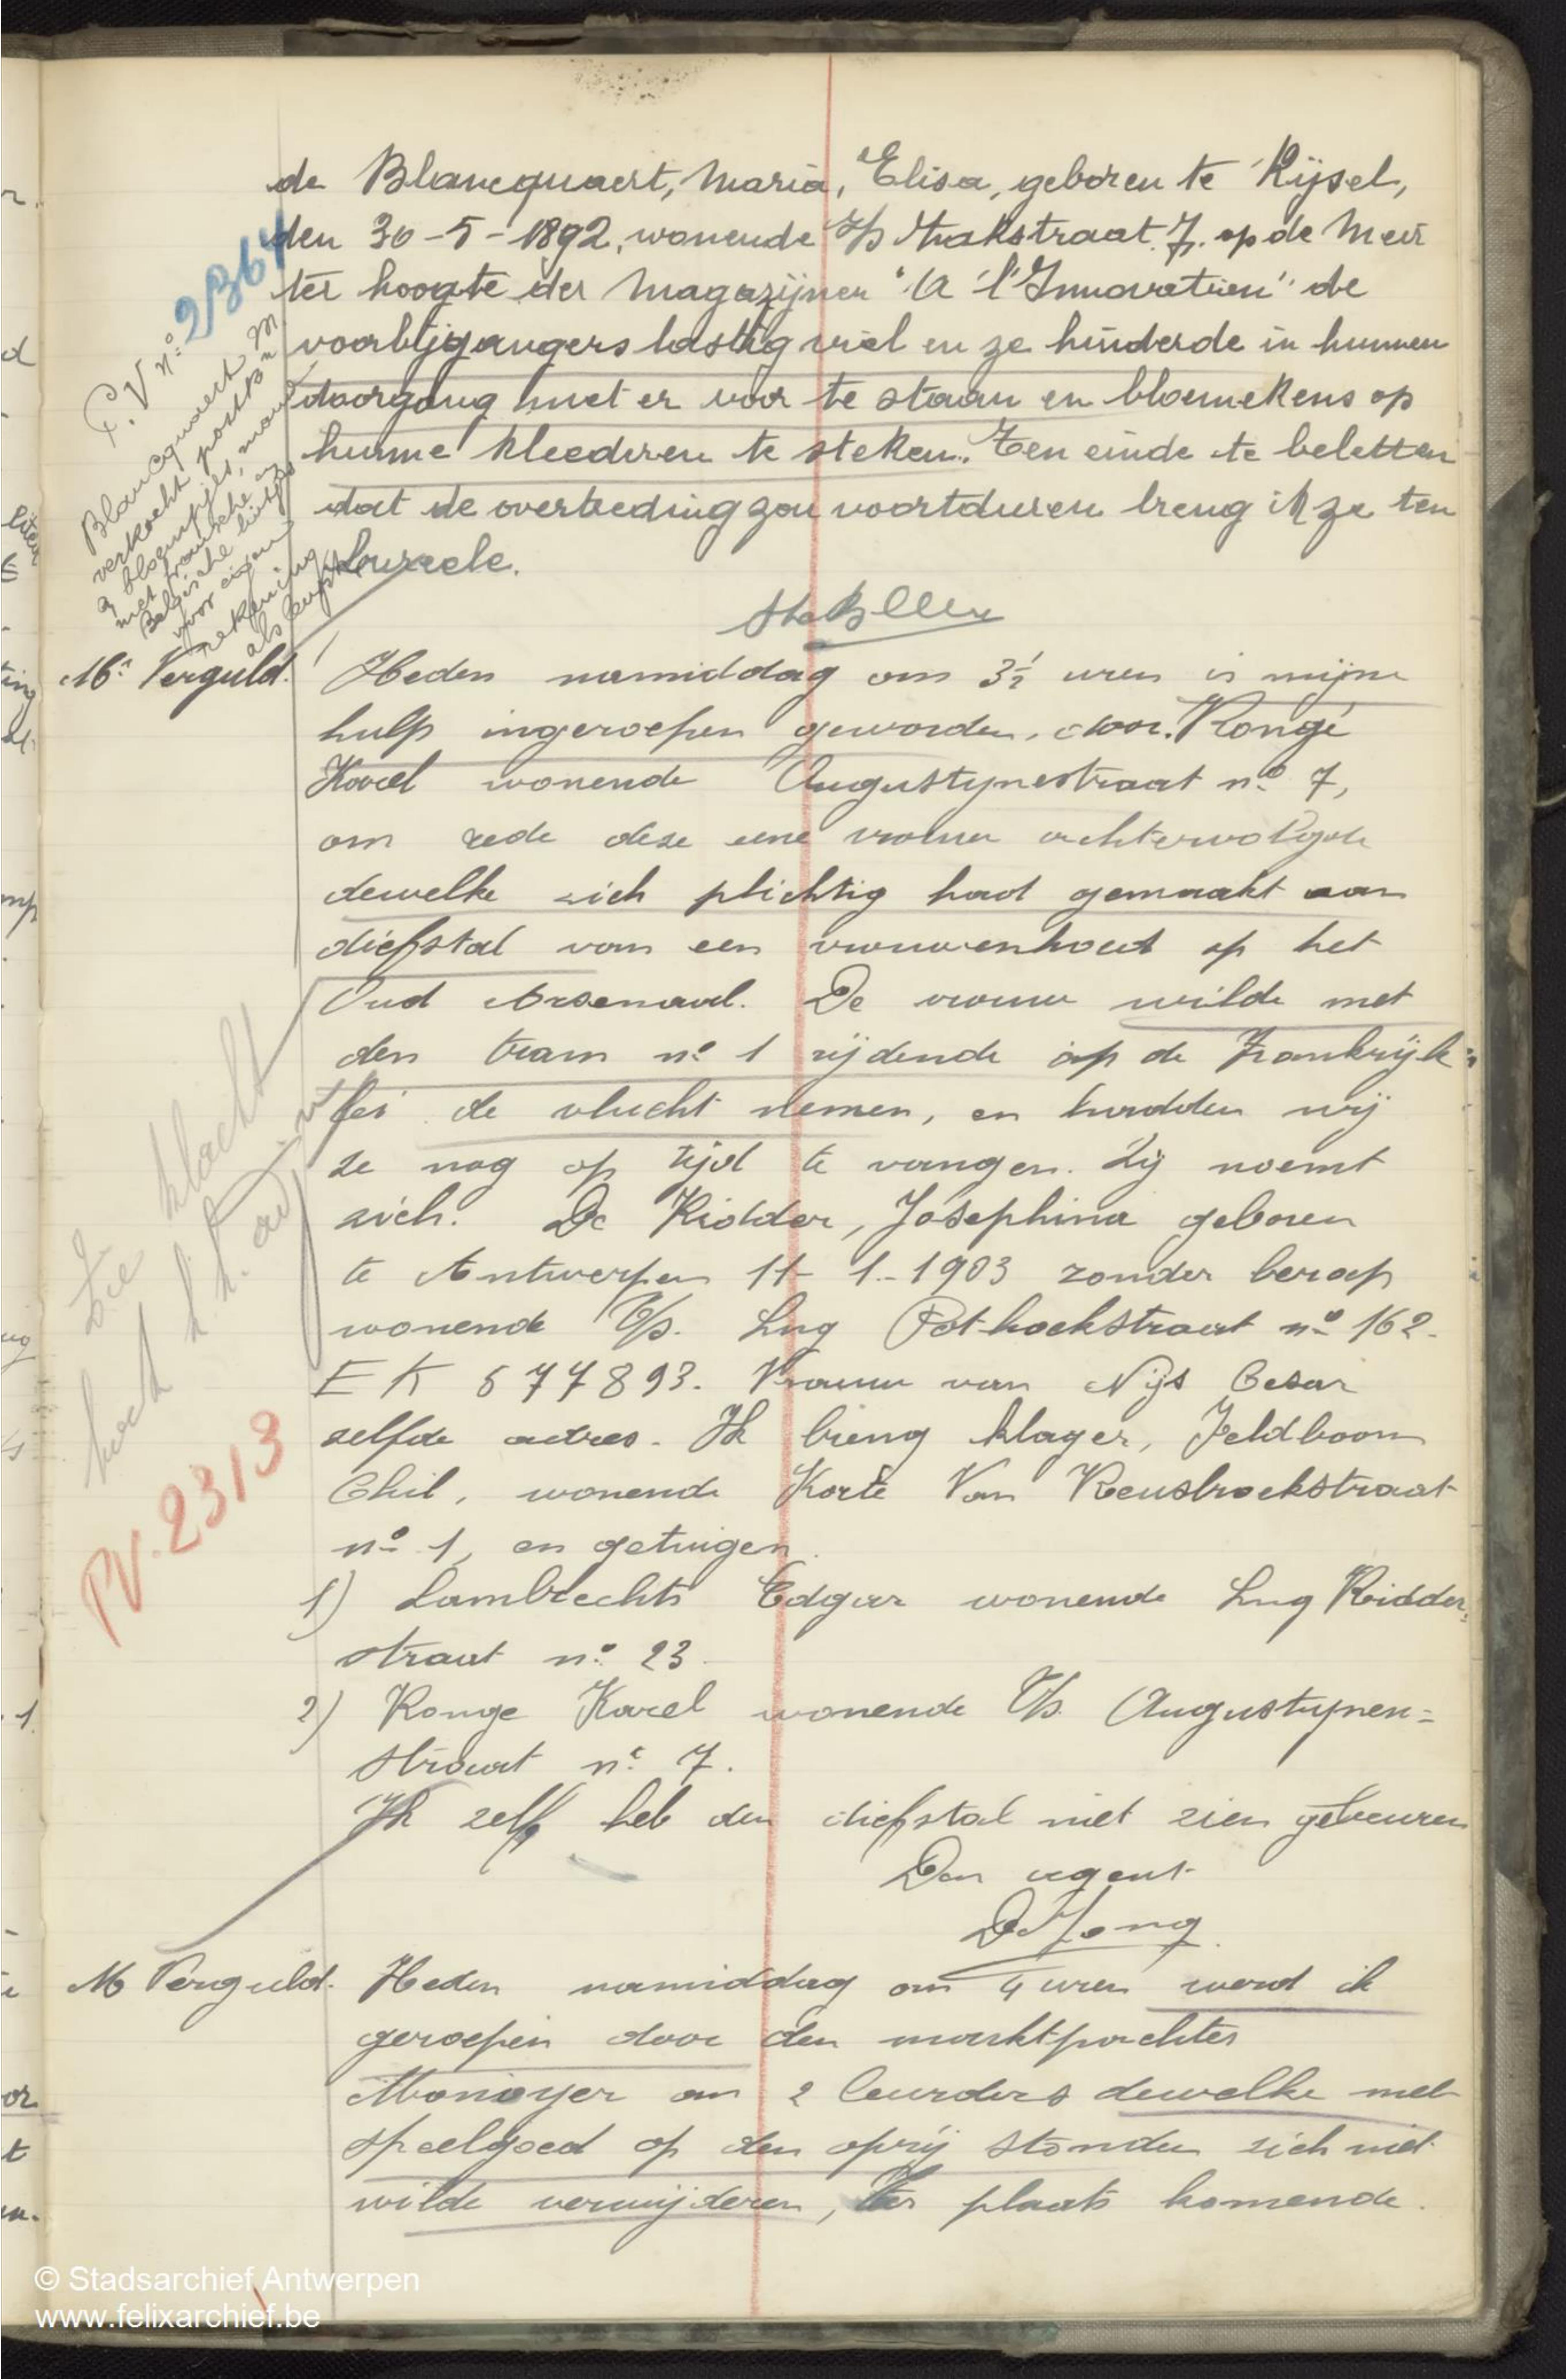 de Blancquaert, Maria, Elisa, geboren te Rijsel,
den 30-5-1892, wonende t/s Krakstraat 7. op de Meir
ter hoogte der Magazijnen "A l'Innovation" de
voorbijgangers lastig viel en ze hinderde in hunnen
doorgang met er voor te staan en bloemekens op
hunne kleederen te steken. Ten einde te beletten
dat de overtreding zou voortduren breng ik ze ten
bureele.
P.V n: 2364
Blancquaert M
verkocht postkn
a bloempjes, maar
met fransche en
Belgische lintjes
voor eigen
rekening
als
16: Verguld. Heden namiddag om 3½ uren is mijne
hulp ingeroepen geworden, door. Rongé
Karel wonende Augustynestraat nº 7,
om rede deze eene vrouw achtervolgde
dewelke zich plichtig had gemaakt aan
diefstal van een vrouwenhoed op het
Oud Arsenaal. De vrouw wilde met
den tram nº 1 rijdende op de Frankrijk=
lei de vlucht nemen, en hadden wij
ze nog op tijd te vangen. Zij noemt
zich. De Ridder, Josephina geboren
te Antwerpen 11-1-1903 zonder beroep
wonende t/s. Lng Pothoekstraat nº 162.
EK 677893. Vrouw van Nijs Cesar
zelfde adres. Ik breng klager, Feldboom
Chil, wonende Korte Van Reusbroekstraat
nº 1, en getuigen.
Zie klacht
PV. 2313
1) Lambrechts Edgar wonende Lng Ridder=
straat nº 23.
2) Ronge Karel wonende t/s. Augustynen=
straat nº 7.
Ik zelf heb den diefstal niet zien gebeuren
Den agent
DeJong
M Verguld. Heden namiddag om 4 uren werd ik
geroepen door den marktpachter
Monoyer om 2 leurders dewelke met
speelgoed op den oprij stonden zich niet
wilde verwijderen, ter plaats komende.
© Stadsarchief Antwerpen
www.felixarchief.be